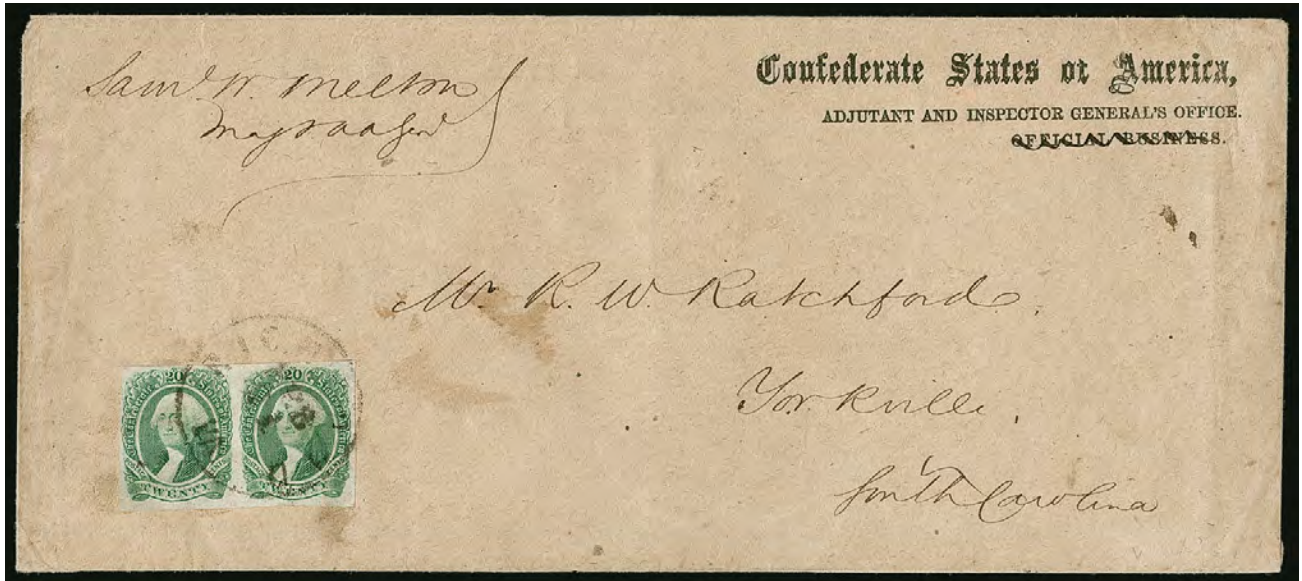 Sam^l W. Melton
Maj & AAGen^l
Confederate States of America,
ADJUTANT AND INSPECTOR GENERAL'S OFFICE.
OFFICIAL BUSINESS.
Mr R. W. Ratchford.
Yorkville.
South Carolina
RICH
20 20
TWENTY TWENTY